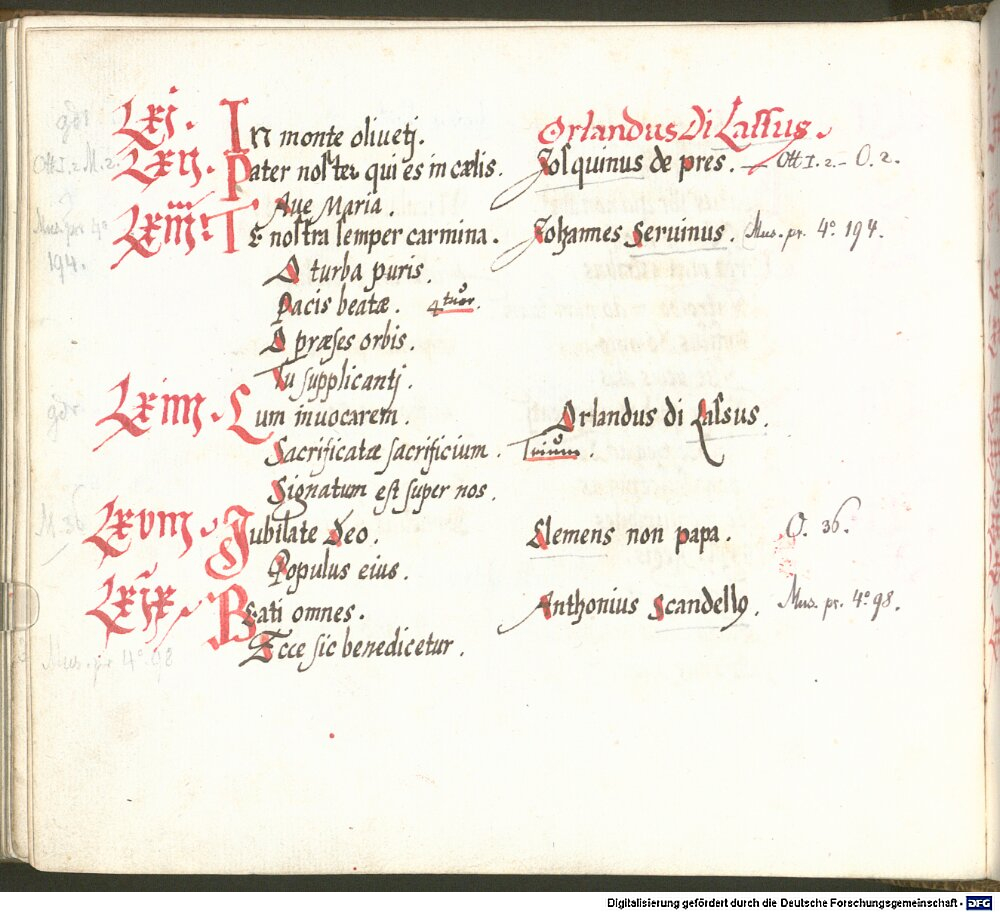 Lxj. In monte olivetj. Orlandus Di Lassus.
Lxij. Pater noster qui es in cælis. Josquinus de pres. — Ott I. 2. – O. 2.
Ott I. 2. M. 2.
Aue Maria.
Lxiij. Te nostra semper carmina. Johannes Seruinus. Mus. pr. 4° 194.
Mus. pr. 4°
194.
O turba puris.
Pacis beatæ. 4tuor.
O præses orbis.
Tu supplicantj.
Lxiiij. Cum inuocarem. Orlandus di Lassus.
Sacrificatæ sacrificium. Trium.
Signatum est super nos.
Lxviij. Jubilate Deo. Clemens non papa. O. 36.
M 36
Populus eius.
Lxix. Beati omnes. Anthonius Scandell9. Mus. pr. 4° 98.
Ecce sic benedicetur.
Mus. pr. 4° 98
Digitalisierung gefördert durch die Deutsche Forschungsgemeinschaft - DFG